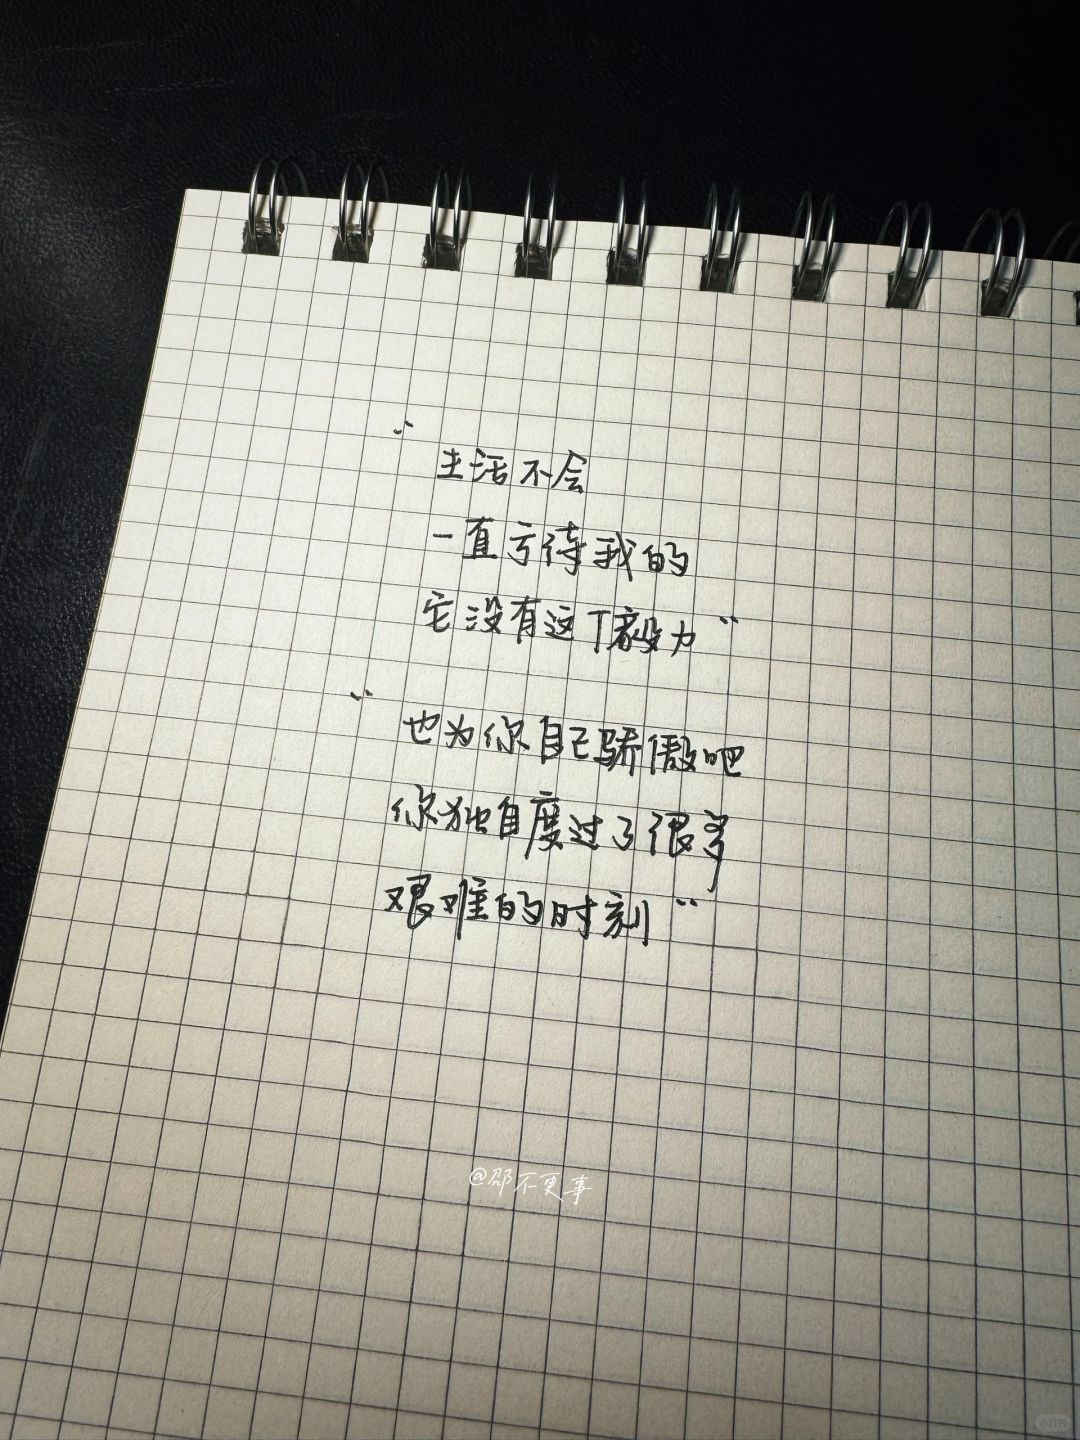 “生活不会
一直亏待我的
它没有这个毅力”
“也为你自己骄傲吧
你独自度过了很多
艰难的时刻”
@邵不更事
小红书